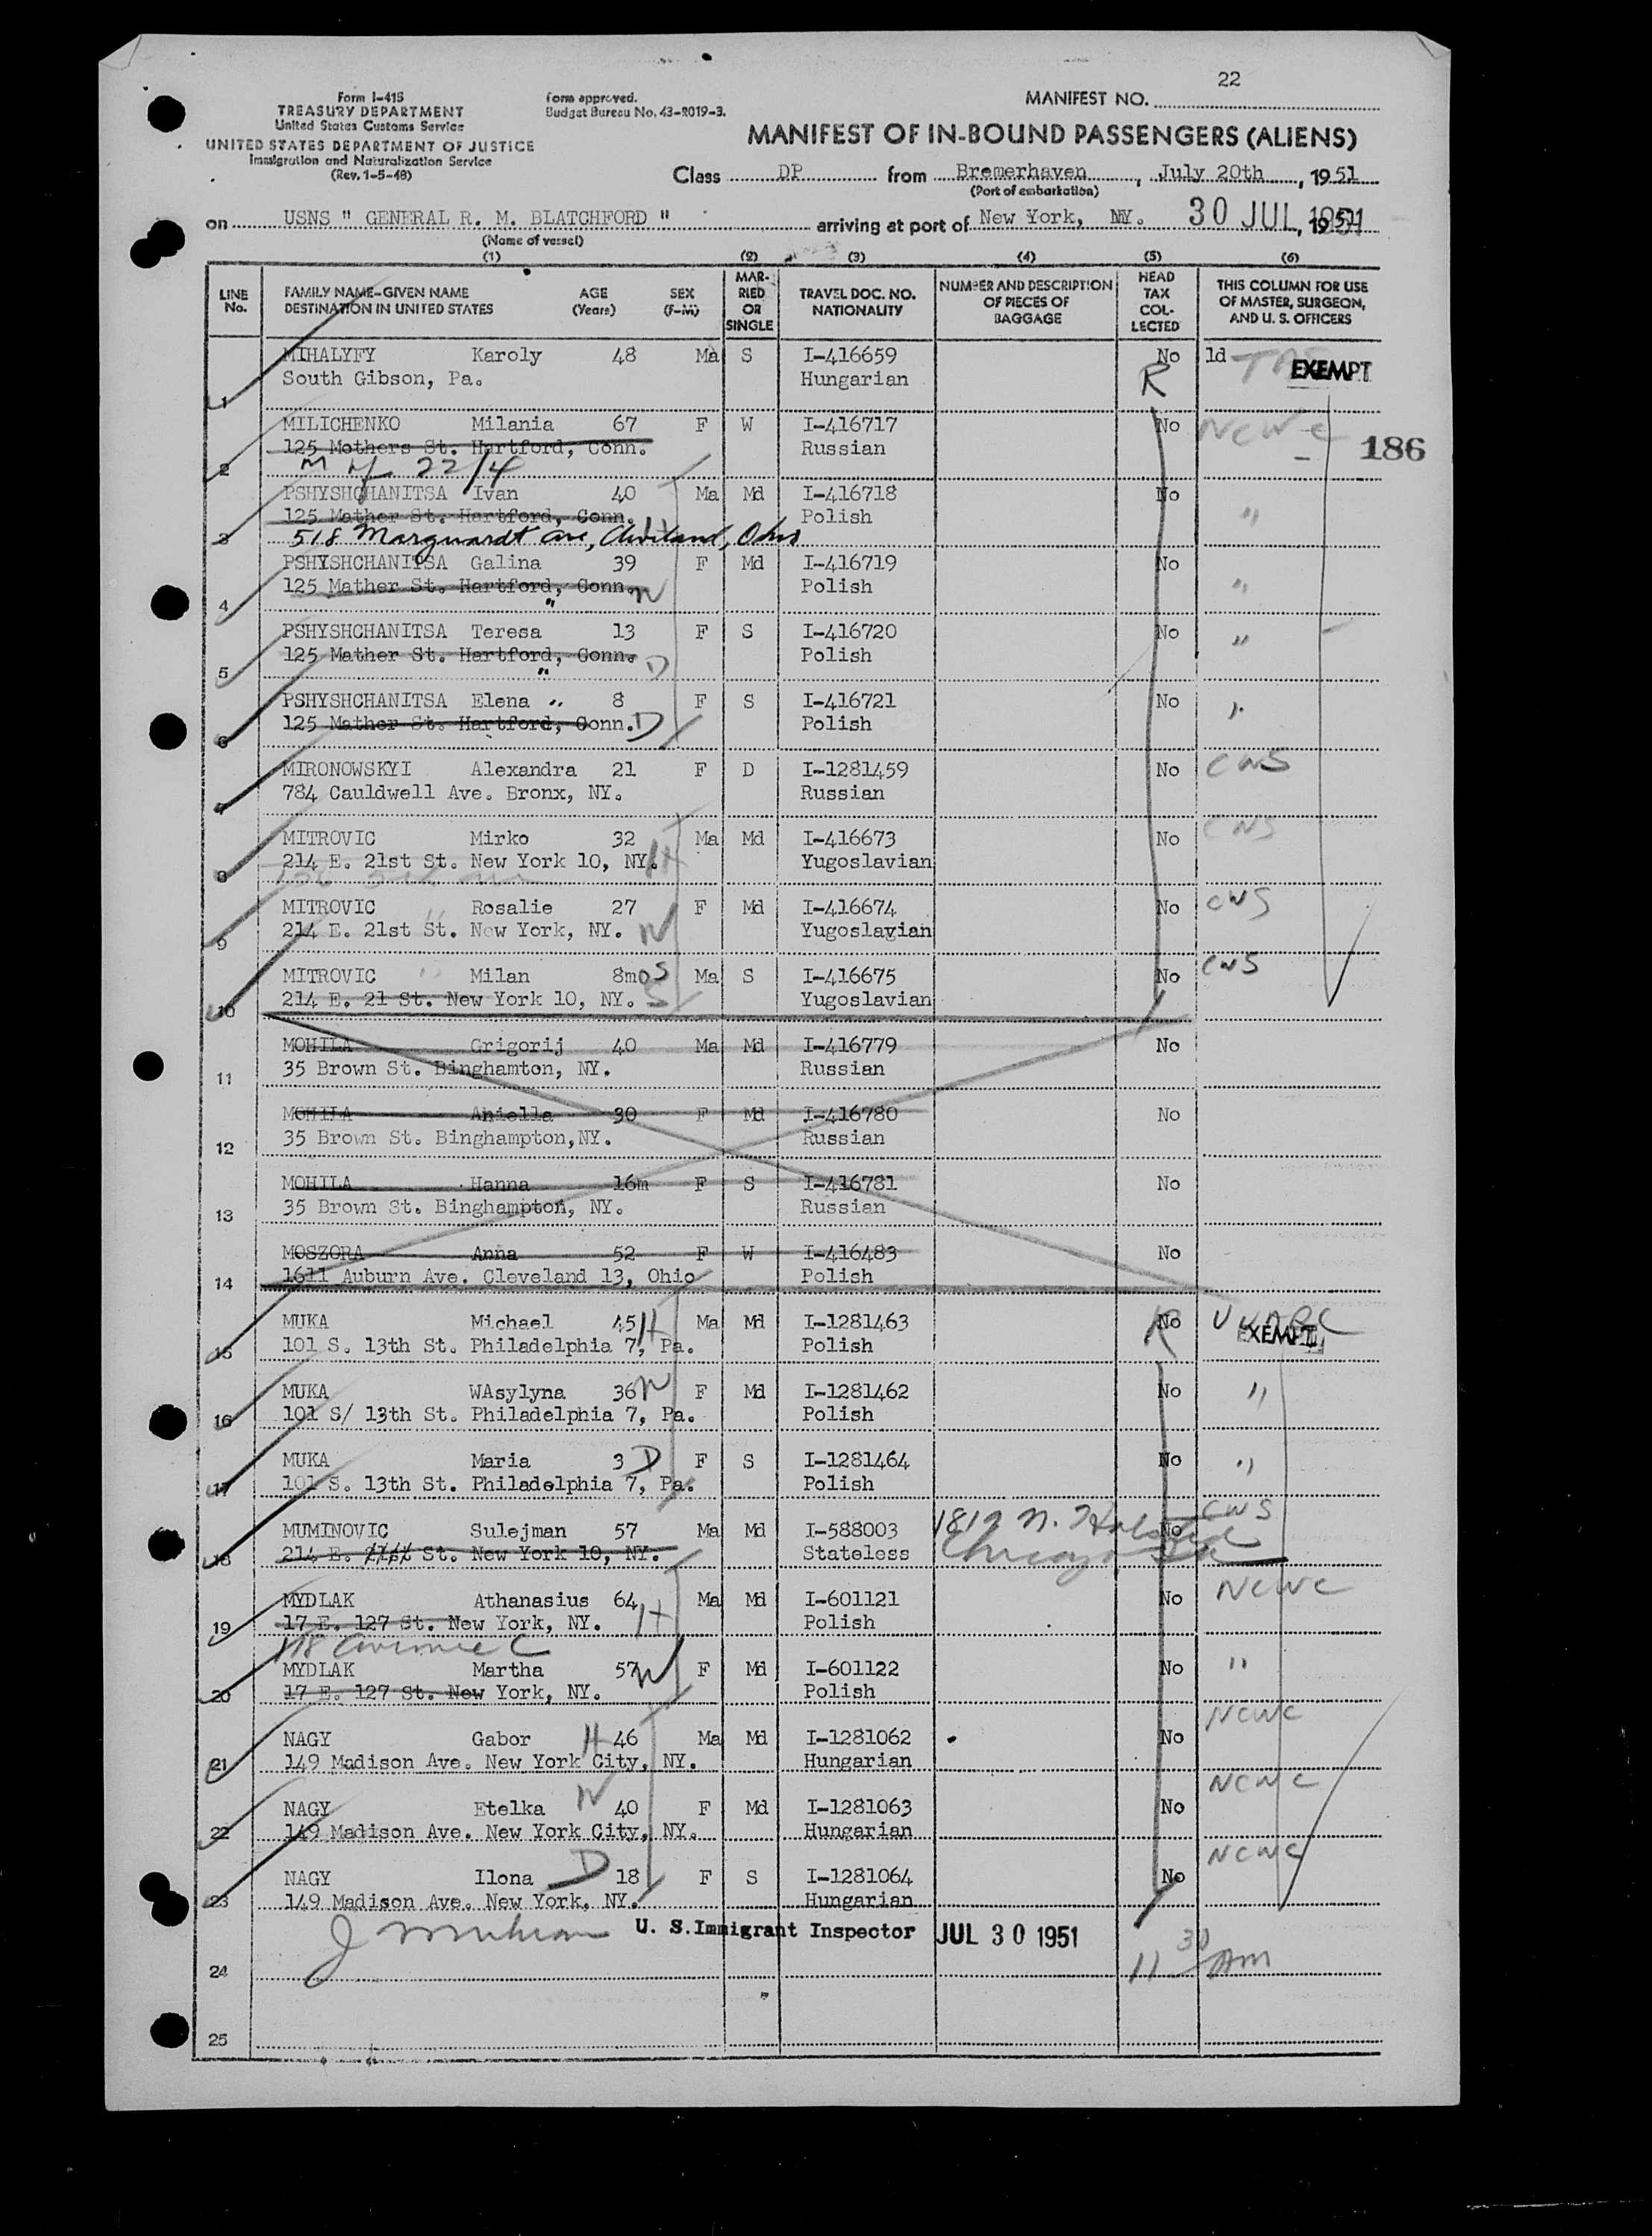 22
Form I-415
TREASURY DEPARTMENT
United States Customs Service
UNITED STATES DEPARTMENT OF JUSTICE
Immigration and Naturalization Service
(Rev. 1-5-48)
Form approved.
Budget Bureau No. 43-R019-3.
MANIFEST NO.
MANIFEST OF IN-BOUND PASSENGERS (ALIENS)
Class DP from Bremerhaven, July 20th, 1951
(Port of embarkation)
on USNS " GENERAL R. M. BLATCHFORD " arriving at port of New York, NY. 30 JUL 1951, 1951
(Name of vessel)
(1) (2) (3) (4) (5) (6)
LINE No. FAMILY NAME-GIVEN NAME DESTINATION IN UNITED STATES AGE (Years) SEX (F-M) MARRIED OR SINGLE TRAVEL DOC. NO. NATIONALITY NUMBER AND DESCRIPTION OF PIECES OF BAGGAGE HEAD TAX COLLECTED THIS COLUMN FOR USE OF MASTER, SURGEON, AND U. S. OFFICERS
MIHALYFY Karoly 48 Ma S I-416659 No ld EXEMPT
South Gibson, Pa. Hungarian R
1
MILICHENKO Milania 67 F W I-416717 No NCWC
125 Mothers St. Hartford, Conn. Russian 186
2 22/4
PSHYSHCHANITSA Ivan 40 Ma Md I-416718 No
125 Mather St. Hartford, Conn. H Polish "
3 518 Marquardt Ave, Cleveland, Ohio
PSHYSHCHANITSA Galina 39 F Md I-416719 No
125 Mather St. Hartford, Conn. W Polish "
4 "
PSHYSHCHANITSA Teresa 13 F S I-416720 No
125 Mather St. Hartford, Conn. D Polish "
5 "
PSHYSHCHANITSA Elena " 8 F S I-416721 No
125 Mather St. Hartford, Conn. D Polish "
6
MIRONOWSKYI Alexandra 21 F D I-1281459 No CWS
784 Cauldwell Ave. Bronx, NY. Russian
7
MITROVIC Mirko 32 Ma Md I-416673 No CWS
214 E. 21st St. New York 10, NY. H Yugoslavian
8
MITROVIC Rosalie 27 F Md I-416674 No CWS
214 E. 21st St. New York, NY. W Yugoslavian
9
MITROVIC Milan 8mos Ma S I-416675 No CWS
214 E. 21 St. New York 10, NY. S Yugoslavian
10
MOHILA Grigorij 40 Ma Md I-416779 No
35 Brown St. Binghamton, NY. Russian
11
MOHILA Aniella 30 F Md I-416780 No
35 Brown St. Binghampton,NY. Russian
12
MOHILA Hanna 16m F S I-416781 No
35 Brown St. Binghampton, NY. Russian
13
MOSZORA Anna 52 F W I-416483 No
1611 Auburn Ave. Cleveland 13, Ohio Polish
14
MUKA Michael 45 H Ma Md I-1281463 No
101 S. 13th St. Philadelphia 7, Pa. Polish R EXEMPT
15
MUKA WAsylyna 36 W F Md I-1281462 No "
101 S/ 13th St. Philadelphia 7, Pa. Polish
16
MUKA Maria 3 D F S I-1281464 No "
101 S. 13th St. Philadelphia 7, Pa. Polish
17
MUMINOVIC Sulejman 57 Ma Md I-588003 1819 N. Halsted No CWS
214 E. St. New York 10, NY. Stateless Chicago
18
MYDLAK Athanasius 64 Ma Md I-601121 No NCWC
17 E. 127 St. New York, NY. H Polish
19 118 Avenue C
MYDLAK Martha 57 W F Md I-601122 No "
17 E. 127 St. New York, NY. Polish
20
NAGY Gabor H 46 Ma Md I-1281062 No NCWC
149 Madison Ave. New York City, NY. Hungarian
21
NAGY Etelka W 40 F Md I-1281063 No NCWC
149 Madison Ave. New York City, NY. Hungarian
22
NAGY Ilona D 18 F S I-1281064 No NCWC
149 Madison Ave. New York, NY. Hungarian
23
U. S. Immigrant Inspector JUL 30 1951
24 11 30 AM
25